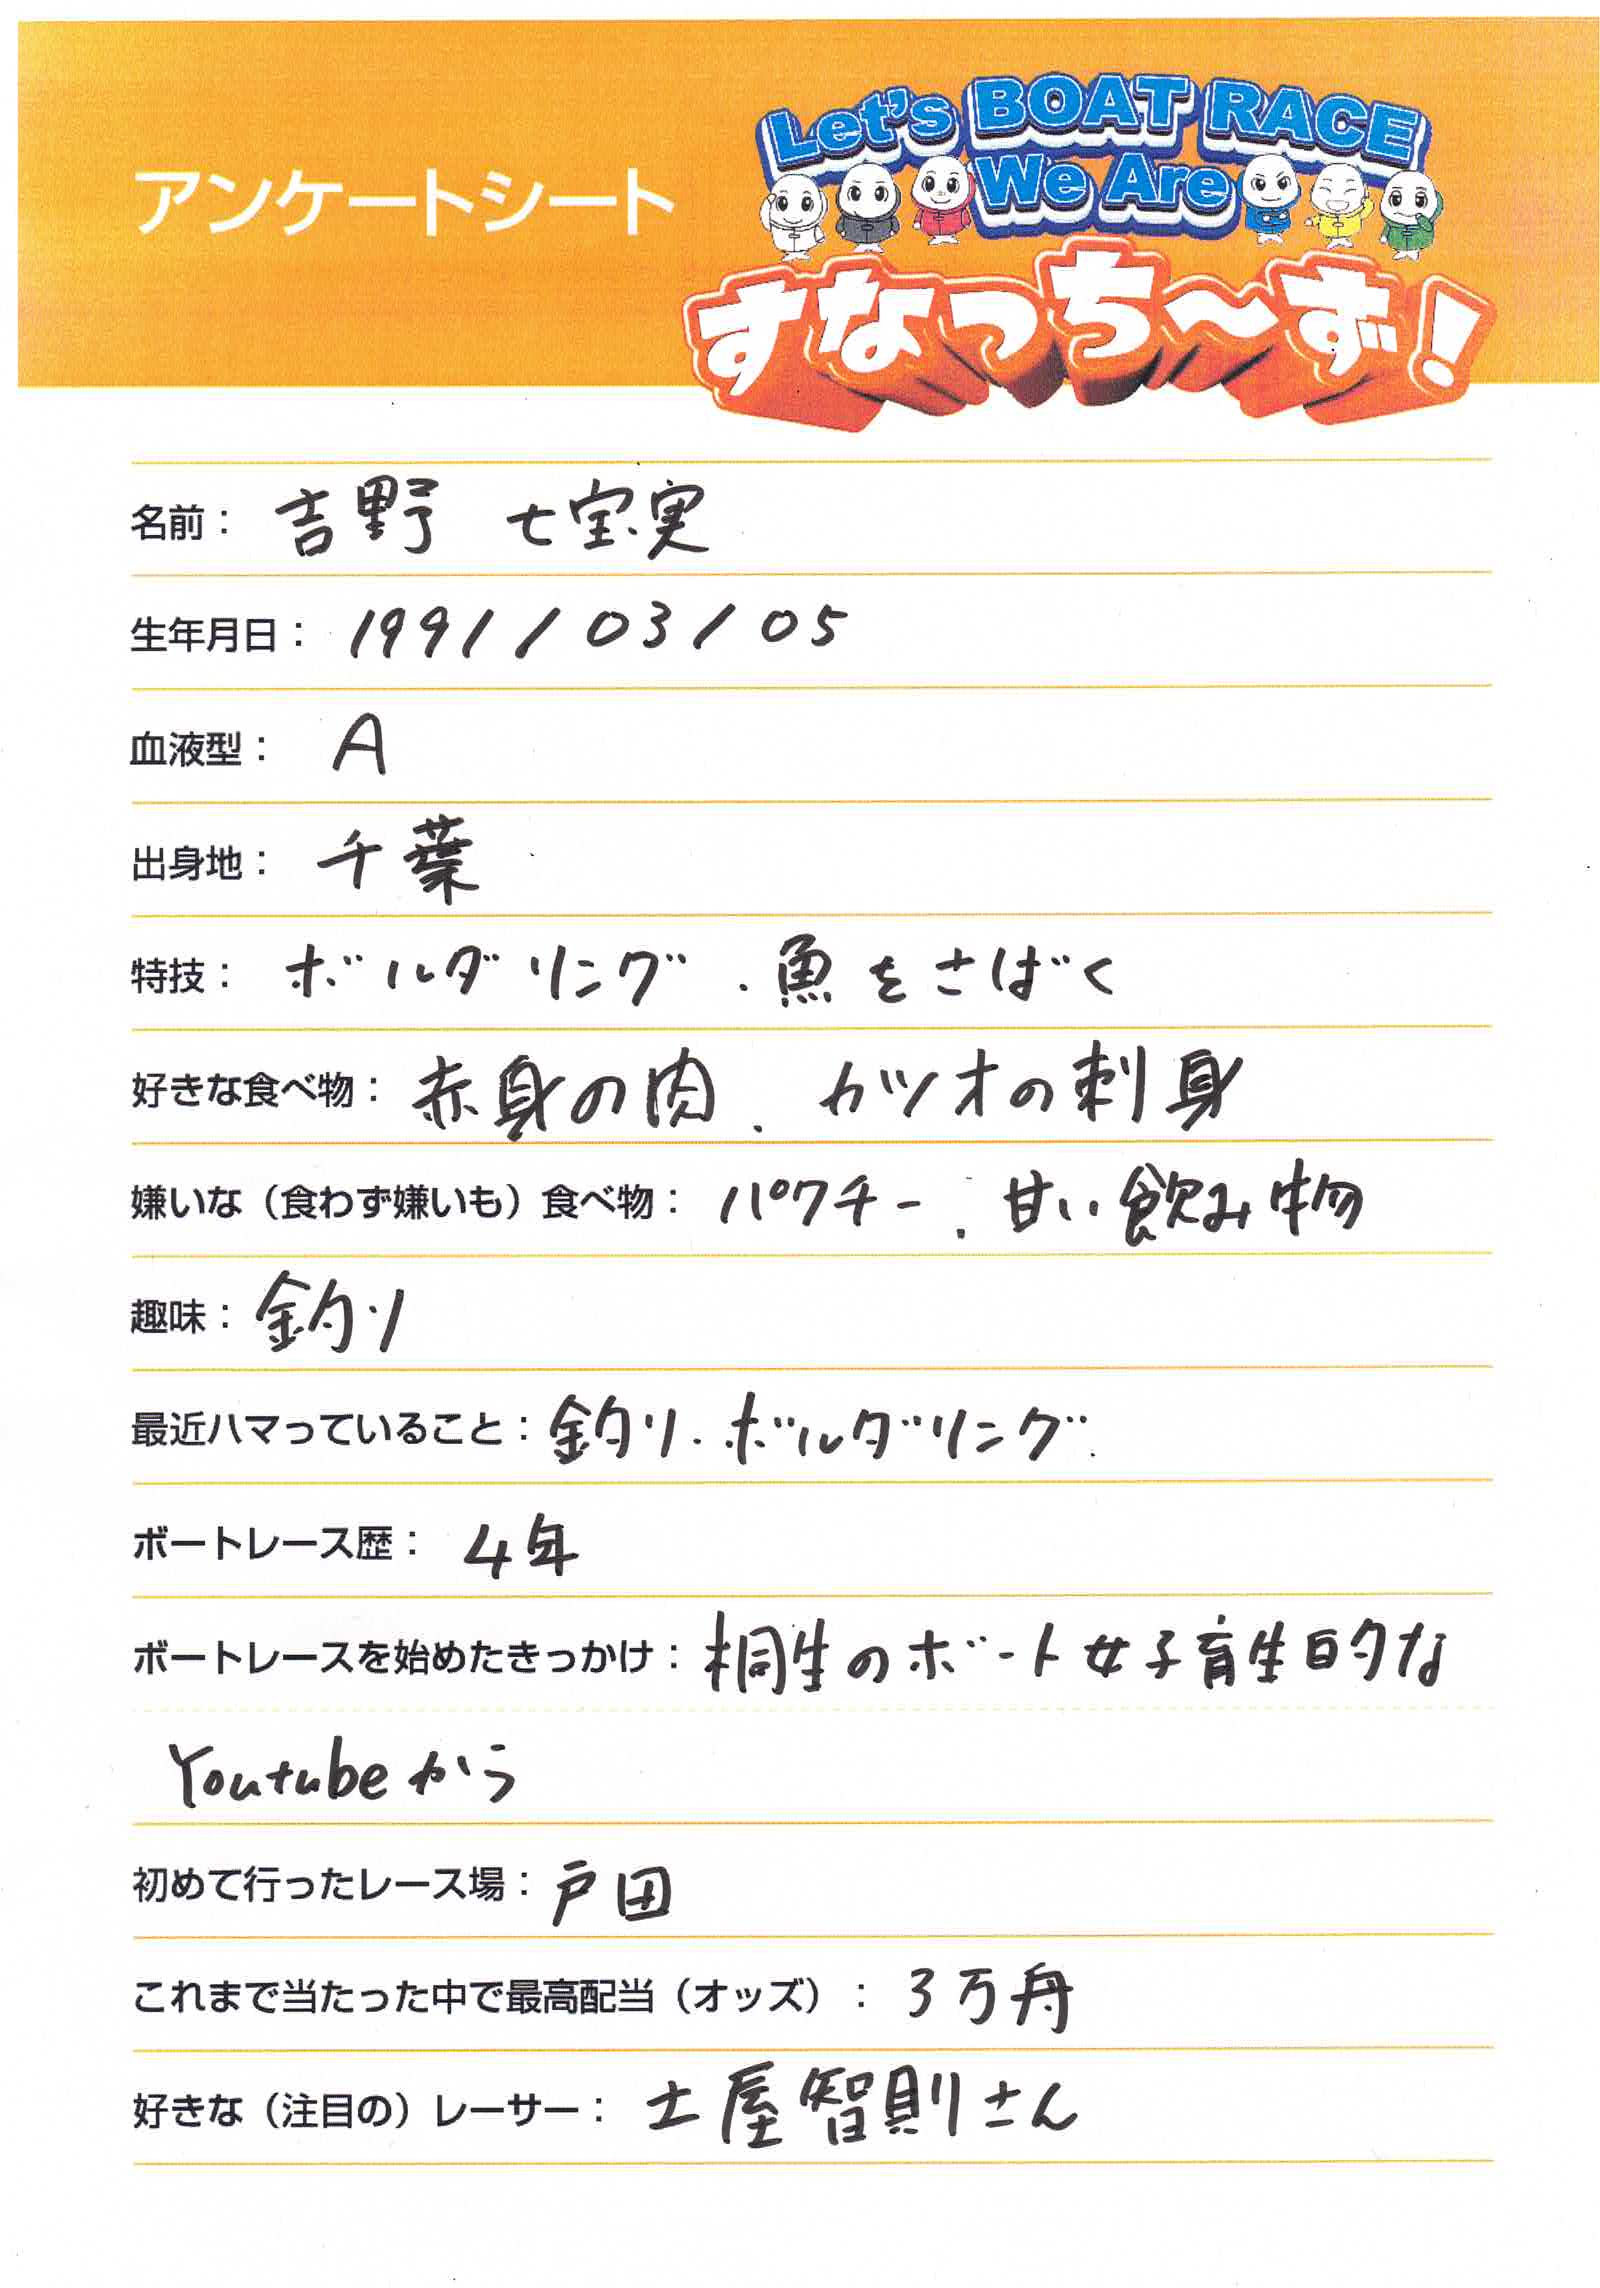 アンケートシート
Let's BOAT RACE
We Are
すなっち～ず!
名前： 吉野 七宝実
生年月日： 1991/03/05
血液型： A
出身地： 千葉
特技： ボルダリング、魚をさばく
好きな食べ物： 赤身の肉、カツオの刺身
嫌いな（食わず嫌いも）食べ物： パクチー、甘い飲み物
趣味： 釣り
最近ハマっていること： 釣り、ボルダリング
ボートレース歴： 4年
ボートレースを始めたきっかけ： 桐生のボート女子育生目的な
Youtubeから
初めて行ったレース場： 戸田
これまで当たった中で最高配当（オッズ）： 3万舟
好きな（注目の）レーサー： 土屋智則さん